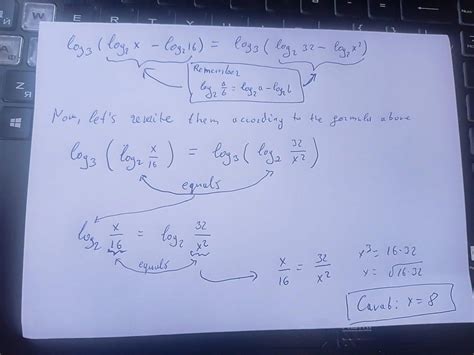 log₃(log₂x − log₂16) = log₃(log₂32 − log₂x²)
Remember
log₂ a/b = log₂a − log₂b
Now, let's rewrite them according to the formula above
log₃(log₂ x/16) = log₃(log₂ 32/x²)
equals
log₂ x/16 = log₂ 32/x²
equals
x/16 = 32/x²
x³ = 16·32
x = √16·32
Cavab: x = 8